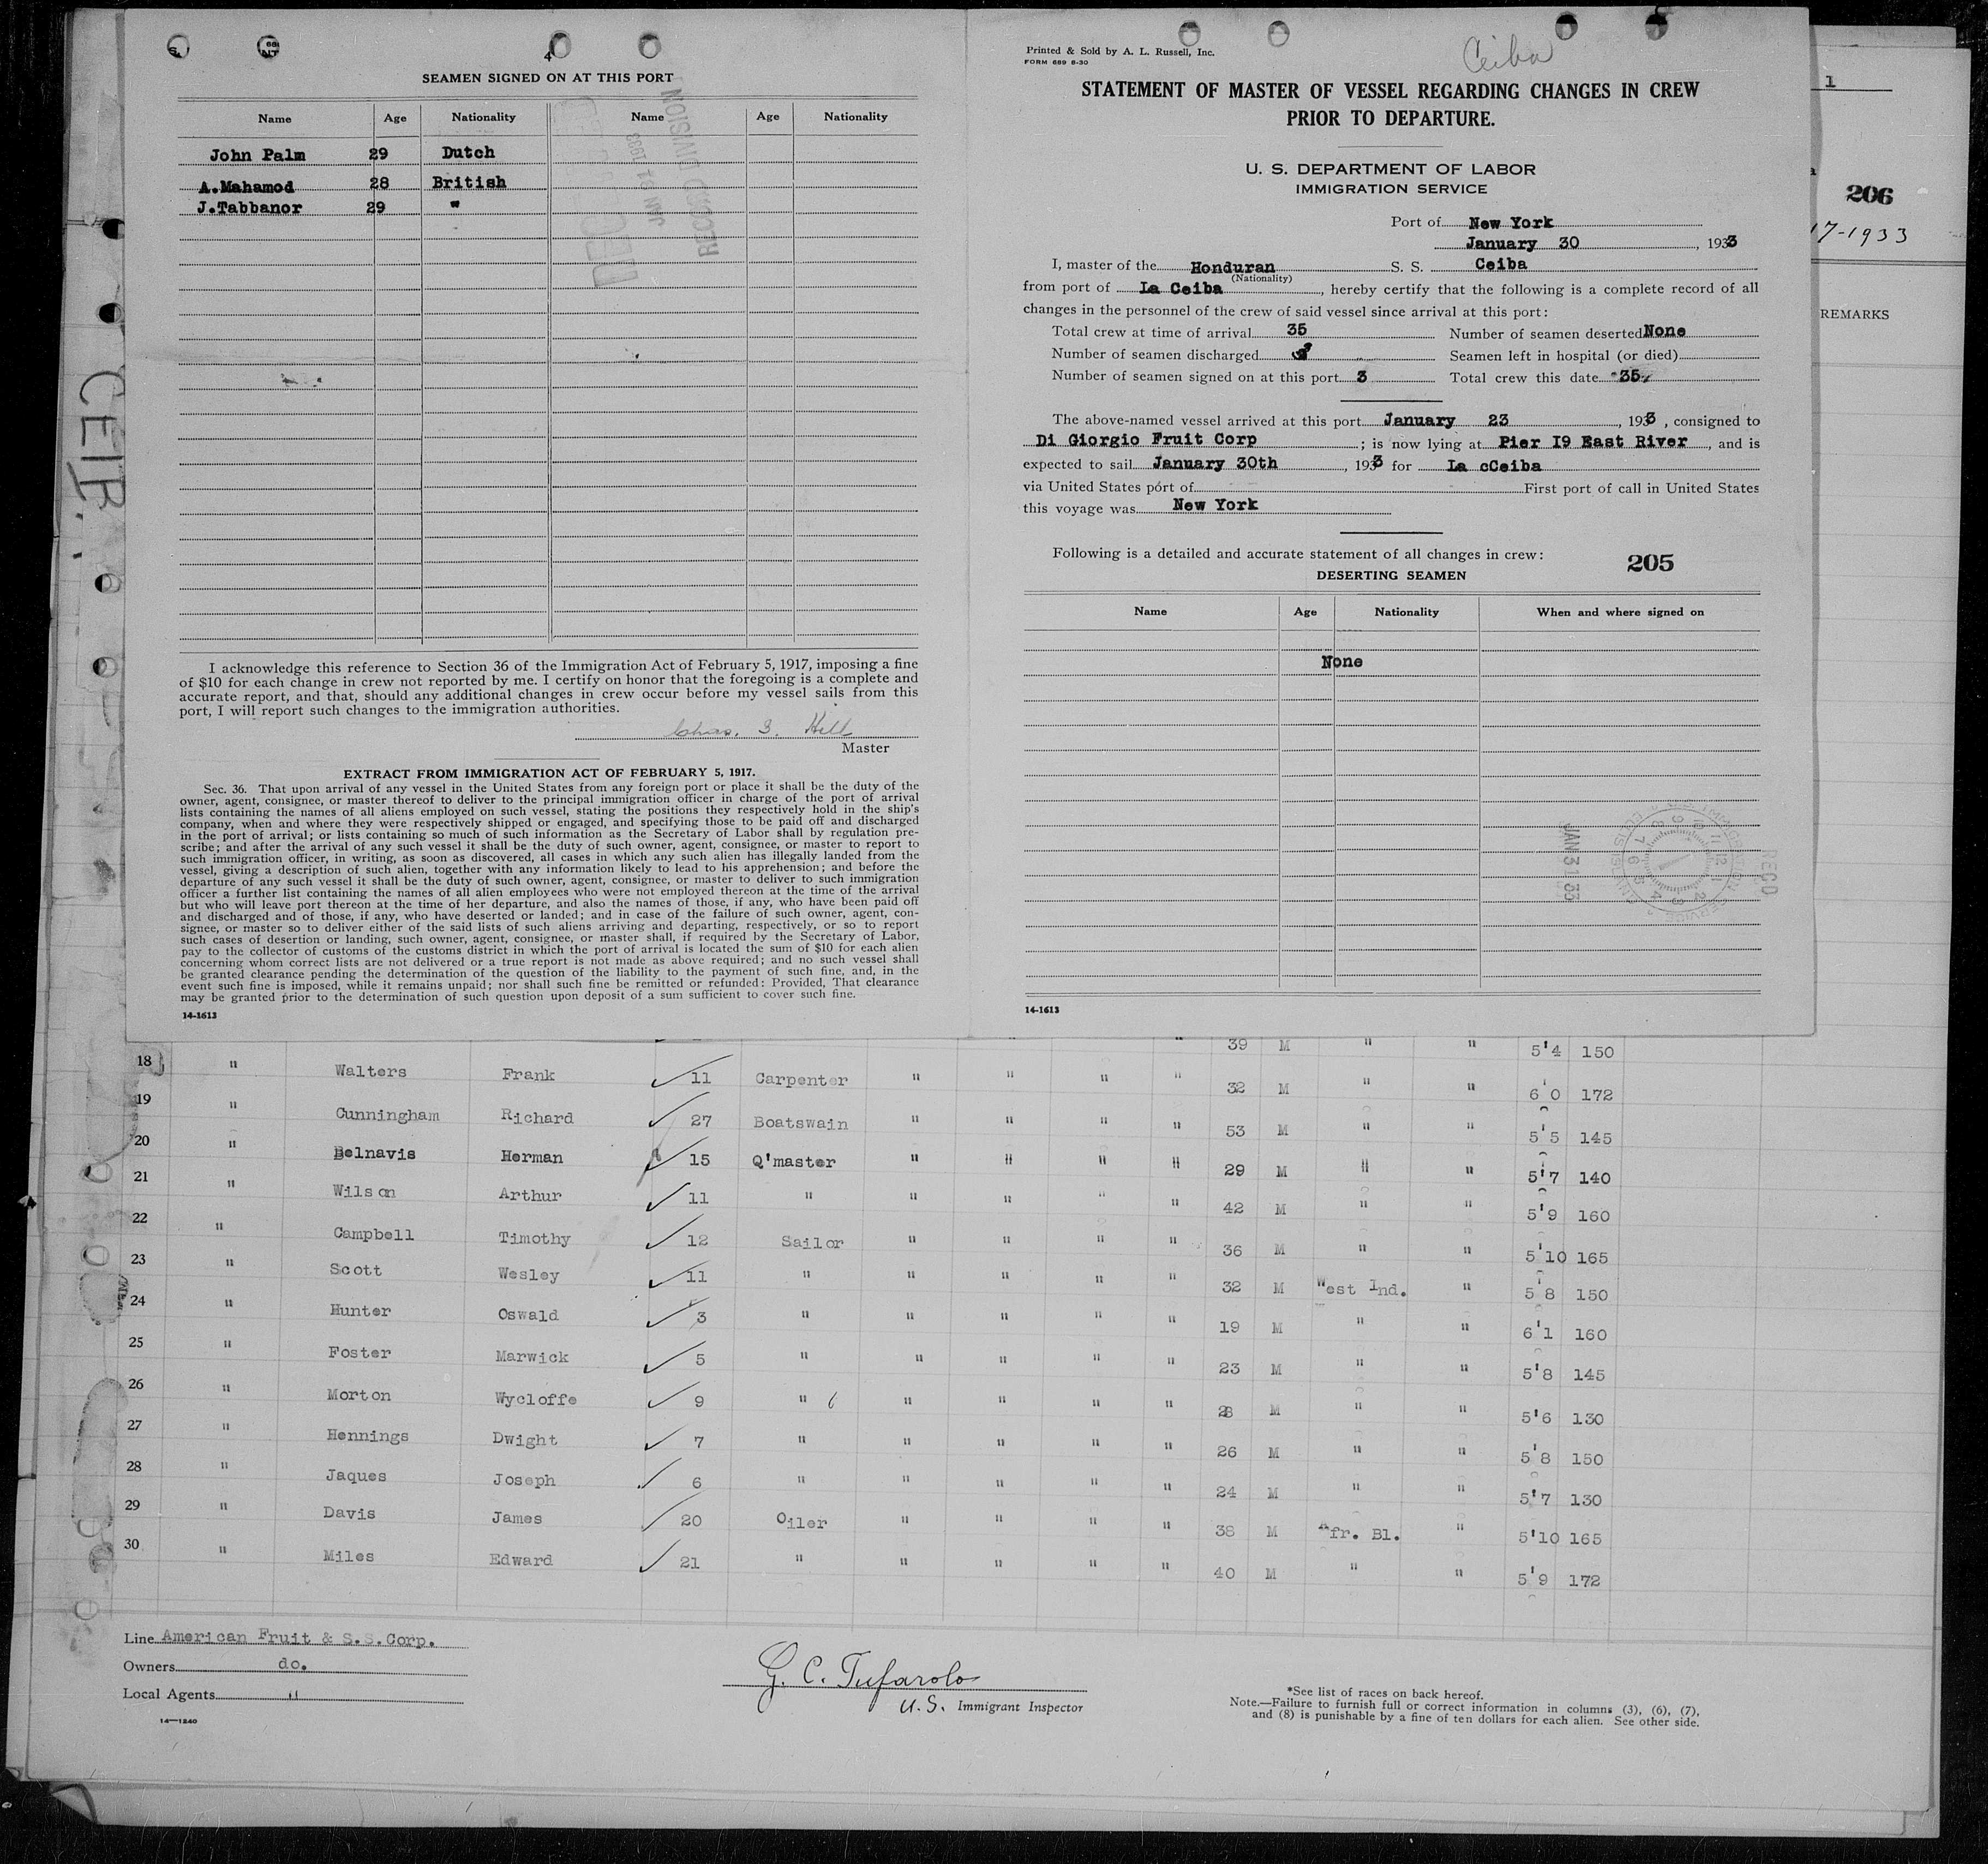 4
SEAMEN SIGNED ON AT THIS PORT
Name Age Nationality Name Age Nationality
John Palm 29 Dutch
A.Mahamod 28 British
J.Tabbanor 29 "
RECORD DIVISION
JAN 31 1933
I acknowledge this reference to Section 36 of the Immigration Act of February 5, 1917, imposing a fine
of $10 for each change in crew not reported by me. I certify on honor that the foregoing is a complete and
accurate report, and that, should any additional changes in crew occur before my vessel sails from this
port, I will report such changes to the immigration authorities.
Chas. Hill
Master
EXTRACT FROM IMMIGRATION ACT OF FEBRUARY 5, 1917.
Sec. 36. That upon arrival of any vessel in the United States from any foreign port or place it shall be the duty of the
owner, agent, consignee, or master thereof to deliver to the principal immigration officer in charge of the port of arrival
lists containing the names of all aliens employed on such vessel, stating the positions they respectively hold in the ship's
company, when and where they were respectively shipped or engaged, and specifying those to be paid off and discharged
in the port of arrival; or lists containing so much of such information as the Secretary of Labor shall by regulation pre-
scribe; and after the arrival of any such vessel it shall be the duty of such owner, agent, consignee, or master to report to
such immigration officer, in writing, as soon as discovered, all cases in which any such alien has illegally landed from the
vessel, giving a description of such alien, together with any information likely to lead to his apprehension; and before the
departure of any such vessel it shall be the duty of such owner, agent, consignee, or master to deliver to such immigration
officer a further list containing the names of all alien employees who were not employed thereon at the time of the arrival
but who will leave port thereon at the time of her departure, and also the names of those, if any, who have been paid off
and discharged and of those, if any, who have deserted or landed; and in case of the failure of such owner, agent, con-
signee, or master so to deliver either of the said lists of such aliens arriving and departing, respectively, or so to report
such cases of desertion or landing, such owner, agent, consignee, or master shall, if required by the Secretary of Labor,
pay to the collector of customs of the customs district in which the port of arrival is located the sum of $10 for each alien
concerning whom correct lists are not delivered or a true report is not made as above required; and no such vessel shall
be granted clearance pending the determination of the question of the liability to the payment of such fine, and, in the
event such fine is imposed, while it remains unpaid; nor shall such fine be remitted or refunded: Provided, That clearance
may be granted prior to the determination of such question upon deposit of a sum sufficient to cover such fine.
14-1613
Printed & Sold by A. L. Russell, Inc.
FORM 689 6-30
Ceiba
STATEMENT OF MASTER OF VESSEL REGARDING CHANGES IN CREW
PRIOR TO DEPARTURE.
U. S. DEPARTMENT OF LABOR
IMMIGRATION SERVICE
Port of New York
January 30, 1933
I, master of the Honduran S. S. Ceiba
(Nationality)
from port of La Ceiba, hereby certify that the following is a complete record of all
changes in the personnel of the crew of said vessel since arrival at this port:
Total crew at time of arrival 35 Number of seamen deserted None
Number of seamen discharged Seamen left in hospital (or died)
Number of seamen signed on at this port 3 Total crew this date 35
The above-named vessel arrived at this port January 23, 1933, consigned to
Di Giorgio Fruit Corp; is now lying at Pier I9 East River, and is
expected to sail January 30th, 1933 for La cCeiba
via United States port of First port of call in United States
this voyage was New York
Following is a detailed and accurate statement of all changes in crew:
205
DESERTING SEAMEN
Name Age Nationality When and where signed on
None
JAN 31 33
REC'D
14-1613
1
206
17-1933
REMARKS
CEIB
39 M " " 5'4 150
18 " Walters Frank 11 Carpenter " " " " 32 M " " 6'0 172
19 " Cunningham Richard 27 Boatswain " " " " 53 M " " 5'5 145
20 " Belnavis Herman 15 Q'master " " " " 29 M " " 5'7 140
21 " Wilson Arthur 11 " " " " " 42 M " " 5'9 160
22 " Campbell Timothy 12 Sailor " " " " 36 M " " 5'10 165
23 " Scott Wesley 11 " " " " " 32 M West Ind. " 5'8 150
24 " Hunter Oswald 3 " " " " " 19 M " " 6'1 160
25 " Foster Marwick 5 " " " " " 23 M " " 5'8 145
26 " Morton Wycloffe 9 " 6 " " " " 28 M " " 5'6 130
27 " Hennings Dwight 7 " " " " " 26 M " " 5'8 150
28 " Jaques Joseph 6 " " " " " 24 M " " 5'7 130
29 " Davis James 20 Oiler " " " " 38 M Afr. Bl. " 5'10 165
30 " Miles Edward 21 " " " " " 40 M " " 5'9 172
Line American Fruit & S.S.Corp.
Owners do.
Local Agents "
14-1240
G. C. Tufarolo
U.S. Immigrant Inspector
*See list of races on back hereof.
Note.—Failure to furnish full or correct information in columns (3), (6), (7),
and (8) is punishable by a fine of ten dollars for each alien. See other side.